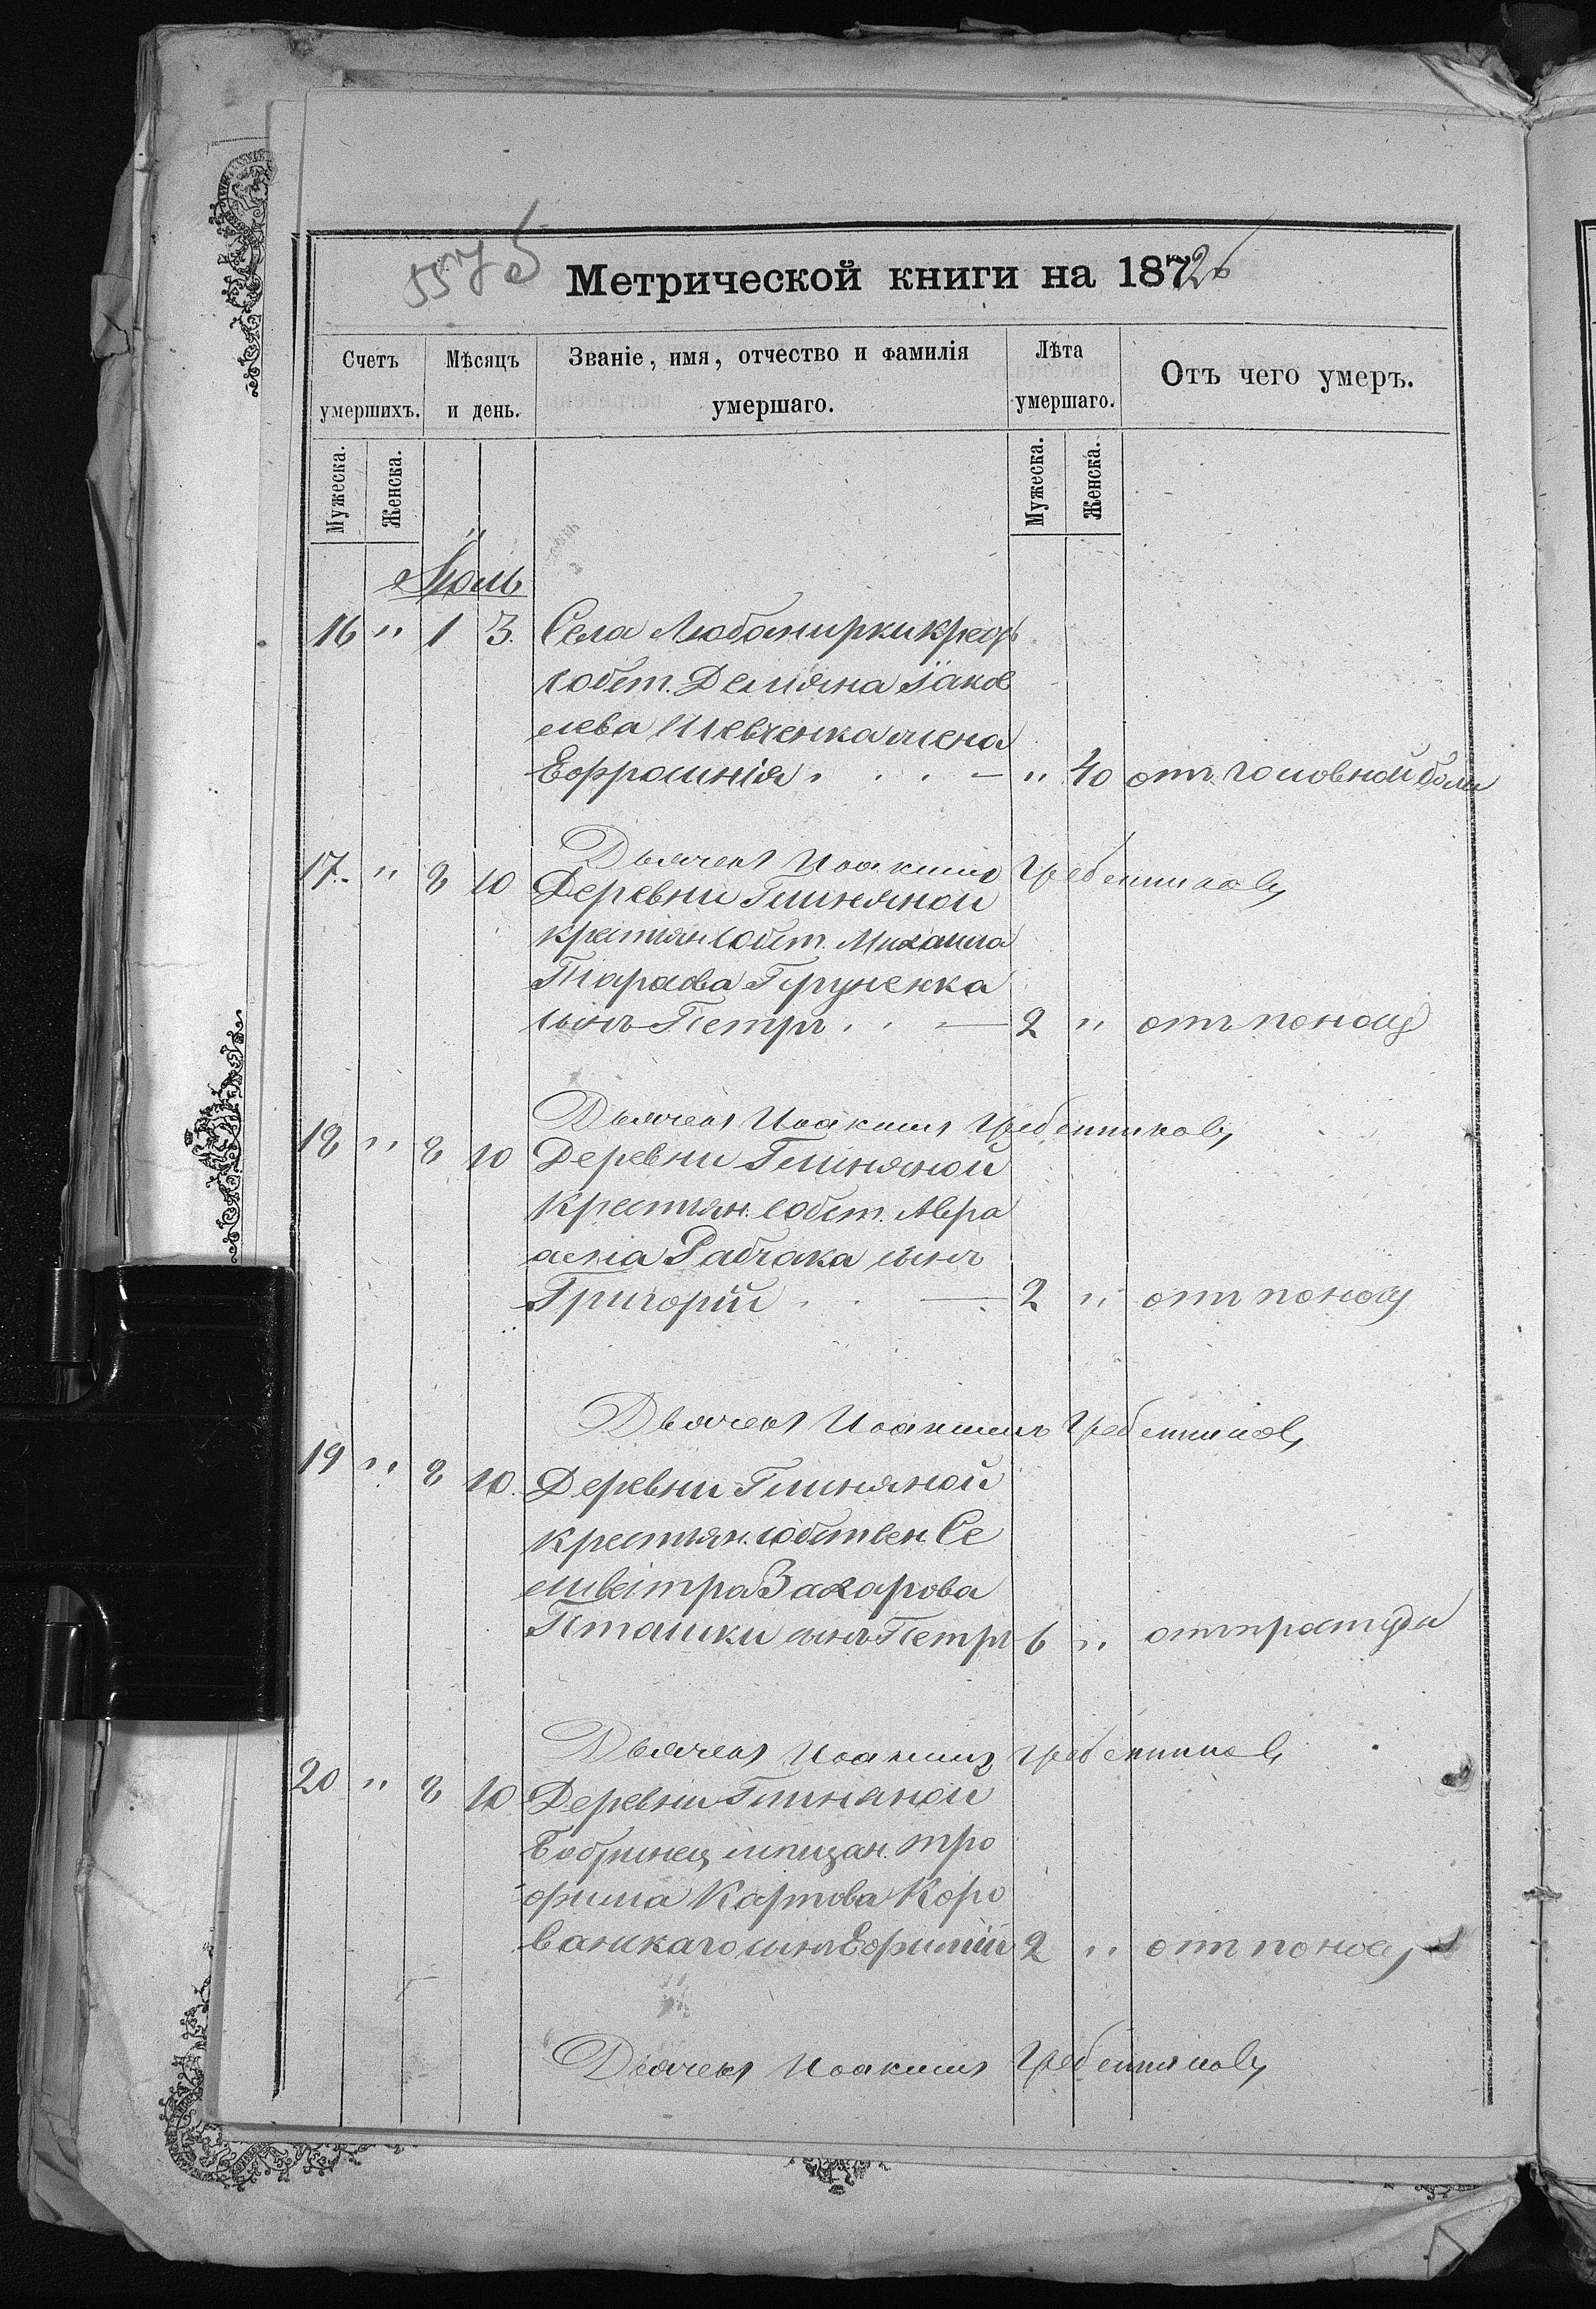 5575
Метрической книги на 1872
Счетъ умершихъ.
Мѣсяцъ и день.
Званіе, имя, отчество и фамилія умершаго.
Лѣта умершаго.
Отъ чего умеръ.
Мужеска.
Женска.
Мужеска.
Женска.
Іюль
16 " 1 3. Села Любомирки крест
собст. Деміяна Іаков
лева Шевченка жена
Ефросинія " 40 отъ головной боли
Дьячекъ Иоакимъ Гребенниковъ
17. " 8 10 Деревни Глиняной
крестьян собст. Михаила
Тарасова Груненка
сынъ Петръ 2 " отъ поносу
Дьячекъ Иоакимъ Гребенниковъ
18 " 8 10 Деревни Глиняной
крестьян. собст. Авра
ама Рабчака сынъ
Григорій 2 " отъ поносу
Дьячекъ Иоакимъ Гребенниковъ
19 " 8 10. Деревни Глиняной
крестьян. собствен. Се
ливестра Захарова
Пташки сынъ Петръ 6 " отъ простуды
Дьячекъ Иоакимъ Гребенниковъ
20 " 8 10 Деревни Глиняной
Бобринец мещан. Тро
фима Карпова Коро
ванскаго сынъ Ефимій 2 " отъ поносу
Дьячекъ Иоакимъ Гребенниковъ